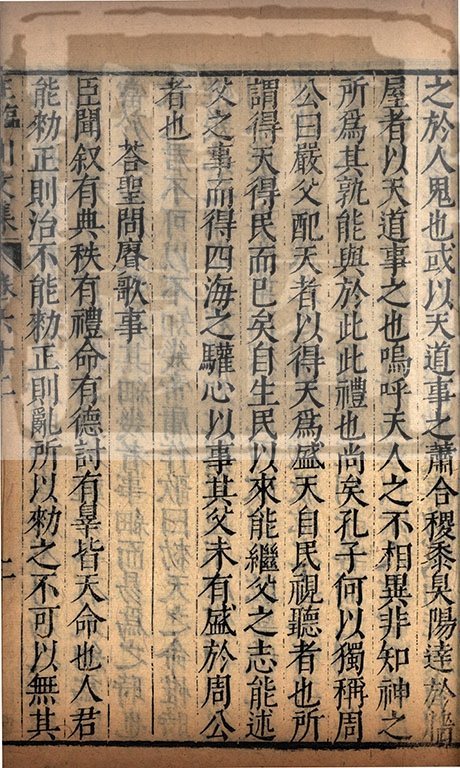 之於人鬼也或以天道事之蕭合稷黍臭陽達於牆
屋者以天道事之也嗚呼天人之不相異非知神之
所爲其孰能與於此此禮也尚矣孔子何以獨稱周
公曰嚴父配天者以得天爲盛天自民視聽者也所
謂得天得民而已矣自生民以來能繼父之志能述
父之事而得四海之驩心以事其父未有盛於周公
者也
荅聖問賡歌事
臣聞叙有典秩有禮命有德討有辠皆天命也人君
能勑正則治不能勑正則亂所以勑之不可以無其
臨川文集 卷六十二